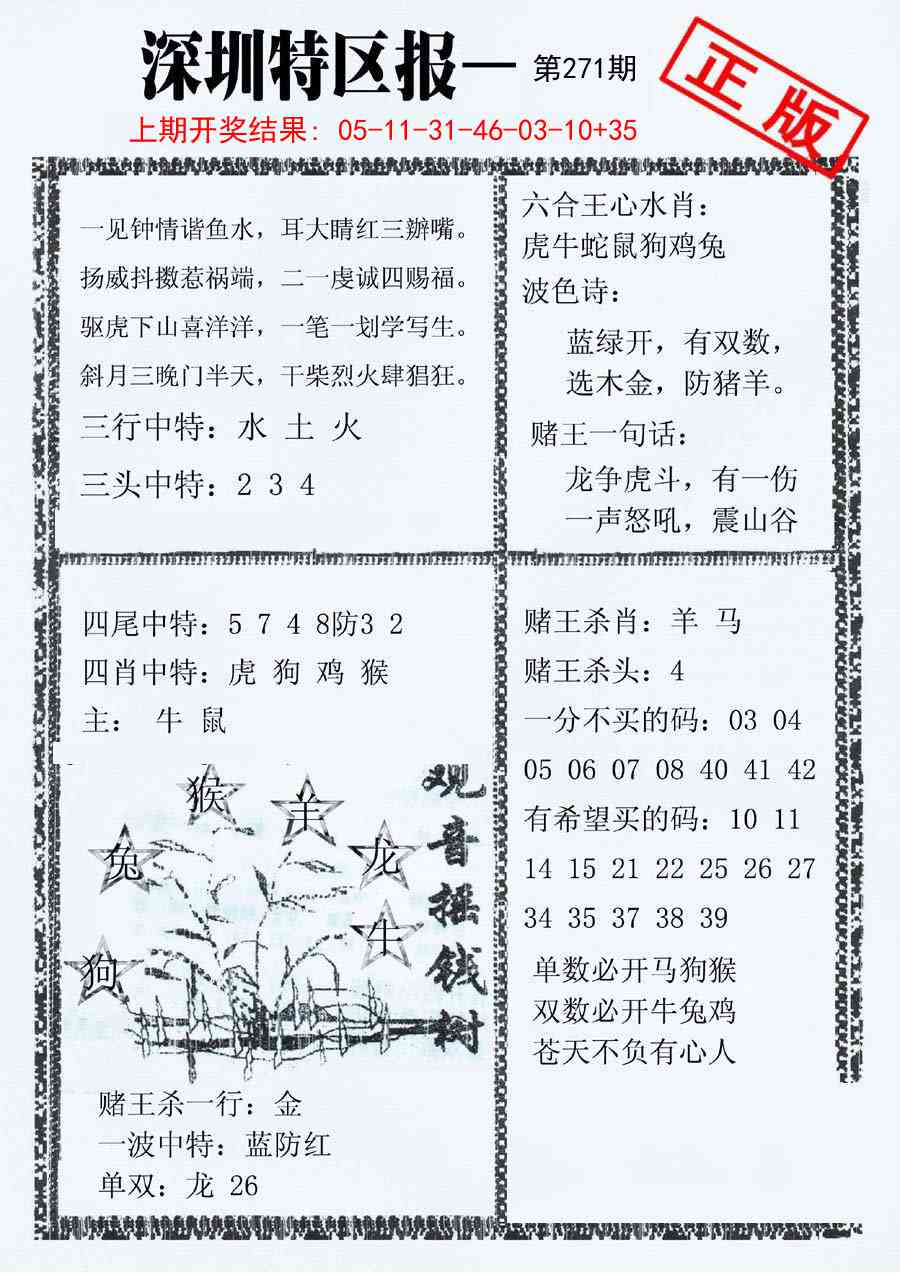 深圳特区报一 第271期
正版
上期开奖结果: 05-11-31-46-03-10+35
一见钟情谐鱼水，耳大睛红三辦嘴。
扬威抖擞惹祸端，二一虔诚四赐福。
驱虎下山喜洋洋，一笔一划学写生。
斜月三晚门半天，干柴烈火肆猖狂。
三行中特: 水 土 火
三头中特: 2 3 4
六合王心水肖:
虎牛蛇鼠狗鸡兔
波色诗:
蓝绿开，有双数，
选木金，防猪羊。
赌王一句话:
龙争虎斗，有一伤
一声怒吼，震山谷
四尾中特: 5 7 4 8防3 2
四肖中特: 虎 狗 鸡 猴
主: 牛 鼠
观音摇钱树
猴
羊
兔
龙
牛
狗
赌王杀一行: 金
一波中特: 蓝防红
单双: 龙 26
赌王杀肖: 羊 马
赌王杀头: 4
一分不买的码: 03 04
05 06 07 08 40 41 42
有希望买的码: 10 11
14 15 21 22 25 26 27
34 35 37 38 39
单数必开马狗猴
双数必开牛兔鸡
苍天不负有心人